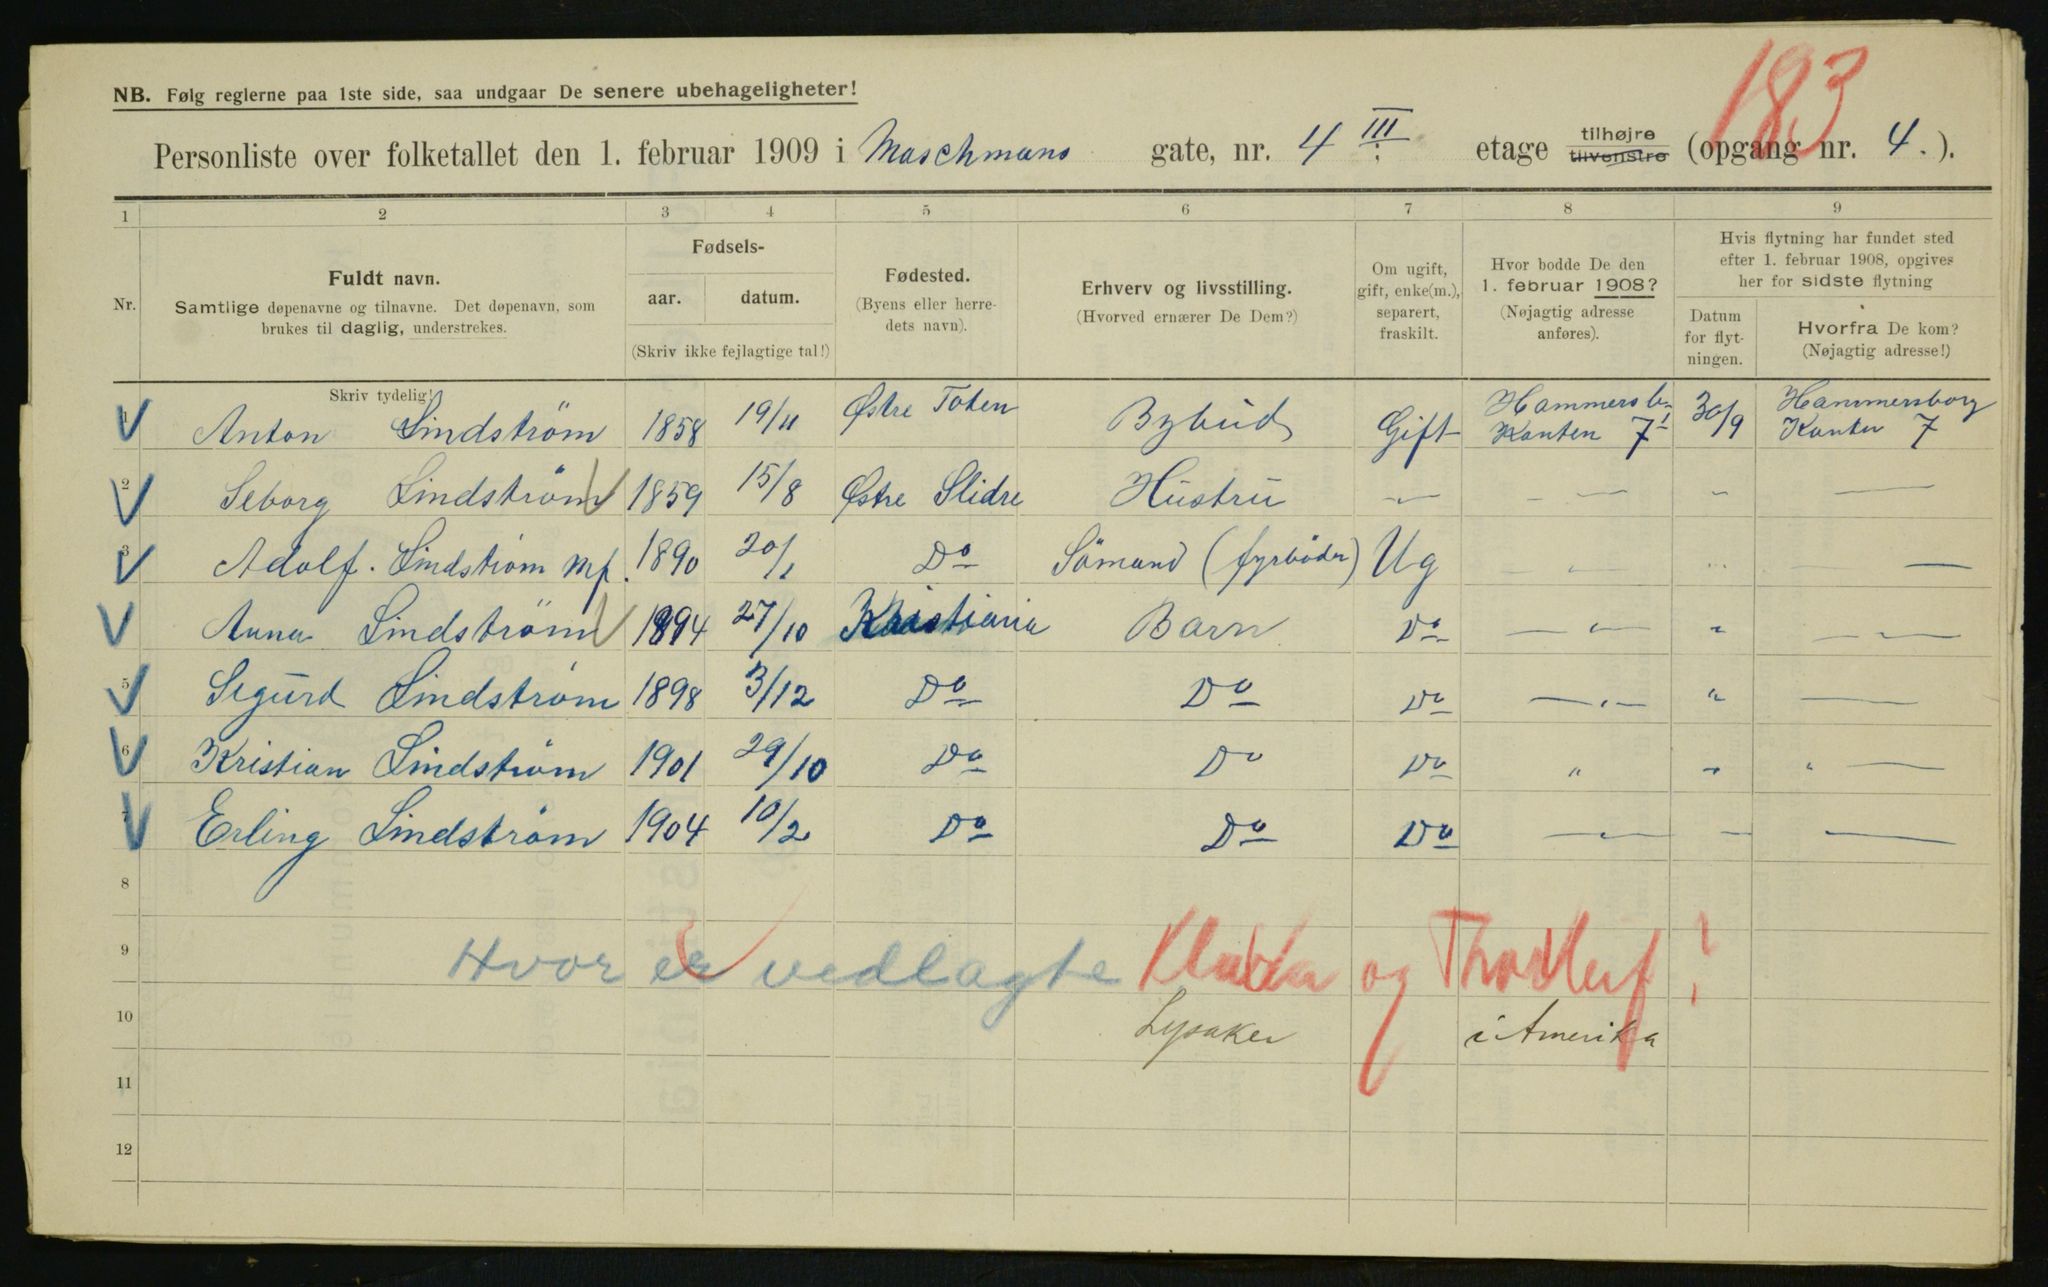 183
NB. Følg reglerne paa 1ste side, saa undgaar De senere ubehageligheter!
Personliste over folketallet den 1. februar 1909 i Maschmans gate, nr. 4 III etage tilhøjre tilvenstre (opgang nr. 4.).
1 2 3 4 5 6 7 8 9
Nr.
Fuldt navn.
Samtlige døpenavne og tilnavne. Det døpenavn, som
brukes til daglig, understrekes.
Skriv tydelig!
Fødsels-
aar. datum.
(Skriv ikke fejlagtige tal!)
Fødested.
(Byens eller herre-
dets navn).
Erhverv og livsstilling.
(Hvorved ernærer De Dem?)
Om ugift,
gift, enke(m.),
separert,
fraskilt.
Hvor bodde De den
1. februar 1908?
(Nøjagtig adresse
anføres).
Hvis flytning har fundet sted
efter 1. februar 1908, opgives
her for sidste flytning
Datum
for flyt-
ningen.
Hvorfra De kom?
(Nøjagtig adresse!)
1 Anton Lindström 1858 19/11 Østre Toten Bybud Gift Hammersb. Kanten 7 30/9 Hammersborg Kanten 7
2 Seborg Lindström 1859 15/8 Østre Slidre Hustru — " — — " — " —
3 Adolf. Lindström Mp. 1890 20/1 Do Sömand (fyrböder) Ug — " — " — —
4 Anna Lindström 1894 27/10 Kristiania Barn Do — " — " — —
5 Sigurd Lindström 1898 3/12 Do Do Do — " — " —
6 Kristian Lindström 1901 29/10 Do Do Do " " " —
7 Erling Lindström 1904 10/2 Do Do Do — " — — —
8
9 Hvor er vedlagte Klara og Thorleif?
10 Lysaker i Amerika
11
12